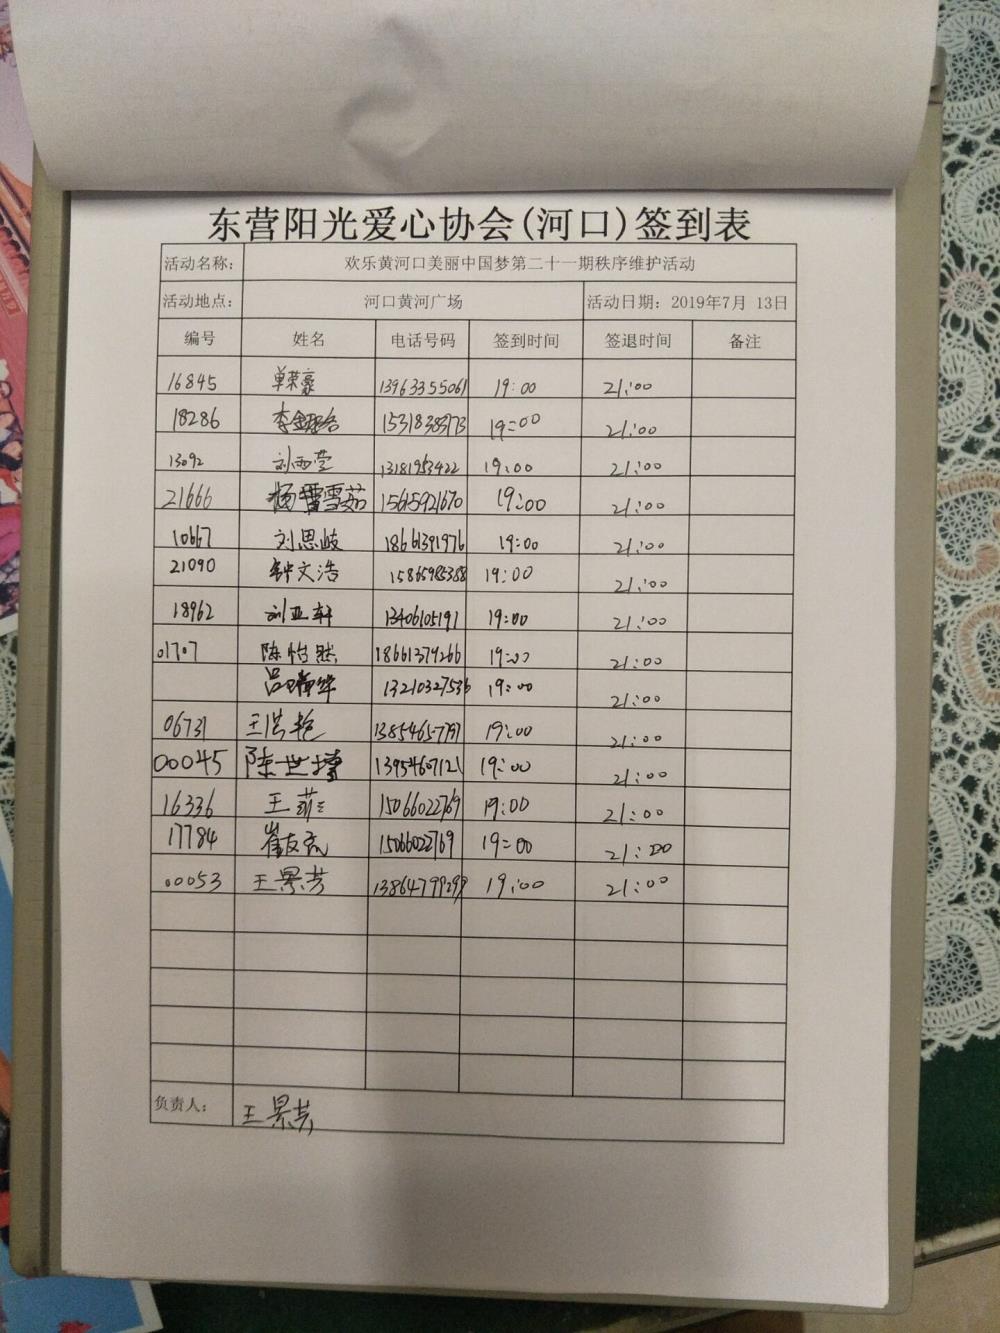 东营阳光爱心协会(河口)签到表
活动名称: 欢乐黄河口美丽中国梦第二十一期秩序维护活动
活动地点: 河口黄河广场 活动日期: 2019年7月 13日
编号 姓名 电话号码 签到时间 签退时间 备注
16845 单荣豪 13963355061 19:00 21:00
18286 李金 19:00 21:00
13092 刘西莹 13181953422 19:00 21:00
21666 杨雪茹 15615921670 19:00 21:00
10667 刘思岐 18661391976 19:00 21:00
21090 钟文浩 15865985388 19:00 21:00
18962 刘亚轩 13406105191 19:00 21:00
01707 陈怡然 18661379266 19:00 21:00
吕 13210327536 19:00 21:00
06731 王洪艳 19:00 21:00
00045 陈世 13954607121 19:00 21:00
16336 王菲 15066022769 19:00 21:00
17784 崔友 15066022769 19:00 21:00
00053 王景芳 19:00 21:00
负责人: 王景芳